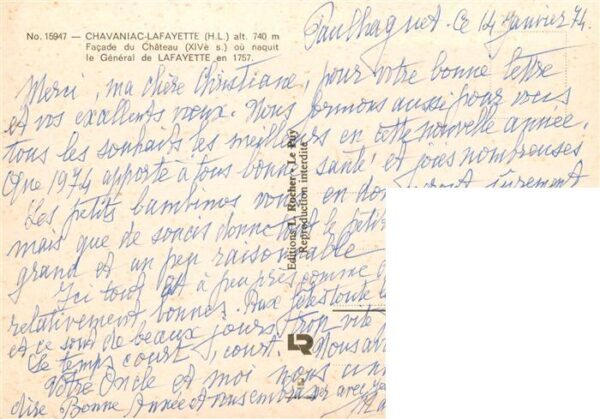 No. 15947 — CHAVANIAC-LAFAYETTE (H.L.) alt. 740 m
Façade du Château (XIVè s.) où naquit
le Général de LAFAYETTE en 1757.
Paulhaguet - Ce 14 Janvier 74.
Merci, ma chère Christiane, pour votre bonne lettre
et vos excellents vœux. Nous formons aussi pour vous
tous les souhaits les meilleurs en cette nouvelle année.
Que 1974 apporte à tous bonne santé et joies nombreuses
Les petits bambinos vous en
mais que de soucis donnent le petit
grand et un peu raisonnable
Ici tout est à peu près comme
relativement bonnes. Aux fêtes toute
et ce sont de beaux jours trop vite
Le temps court, court. Nous
Votre Oncle et moi nous
dire Bonne Année et vous embrasser avec
Editions L. Rocher - Le Puy
Reproduction interdite
LR